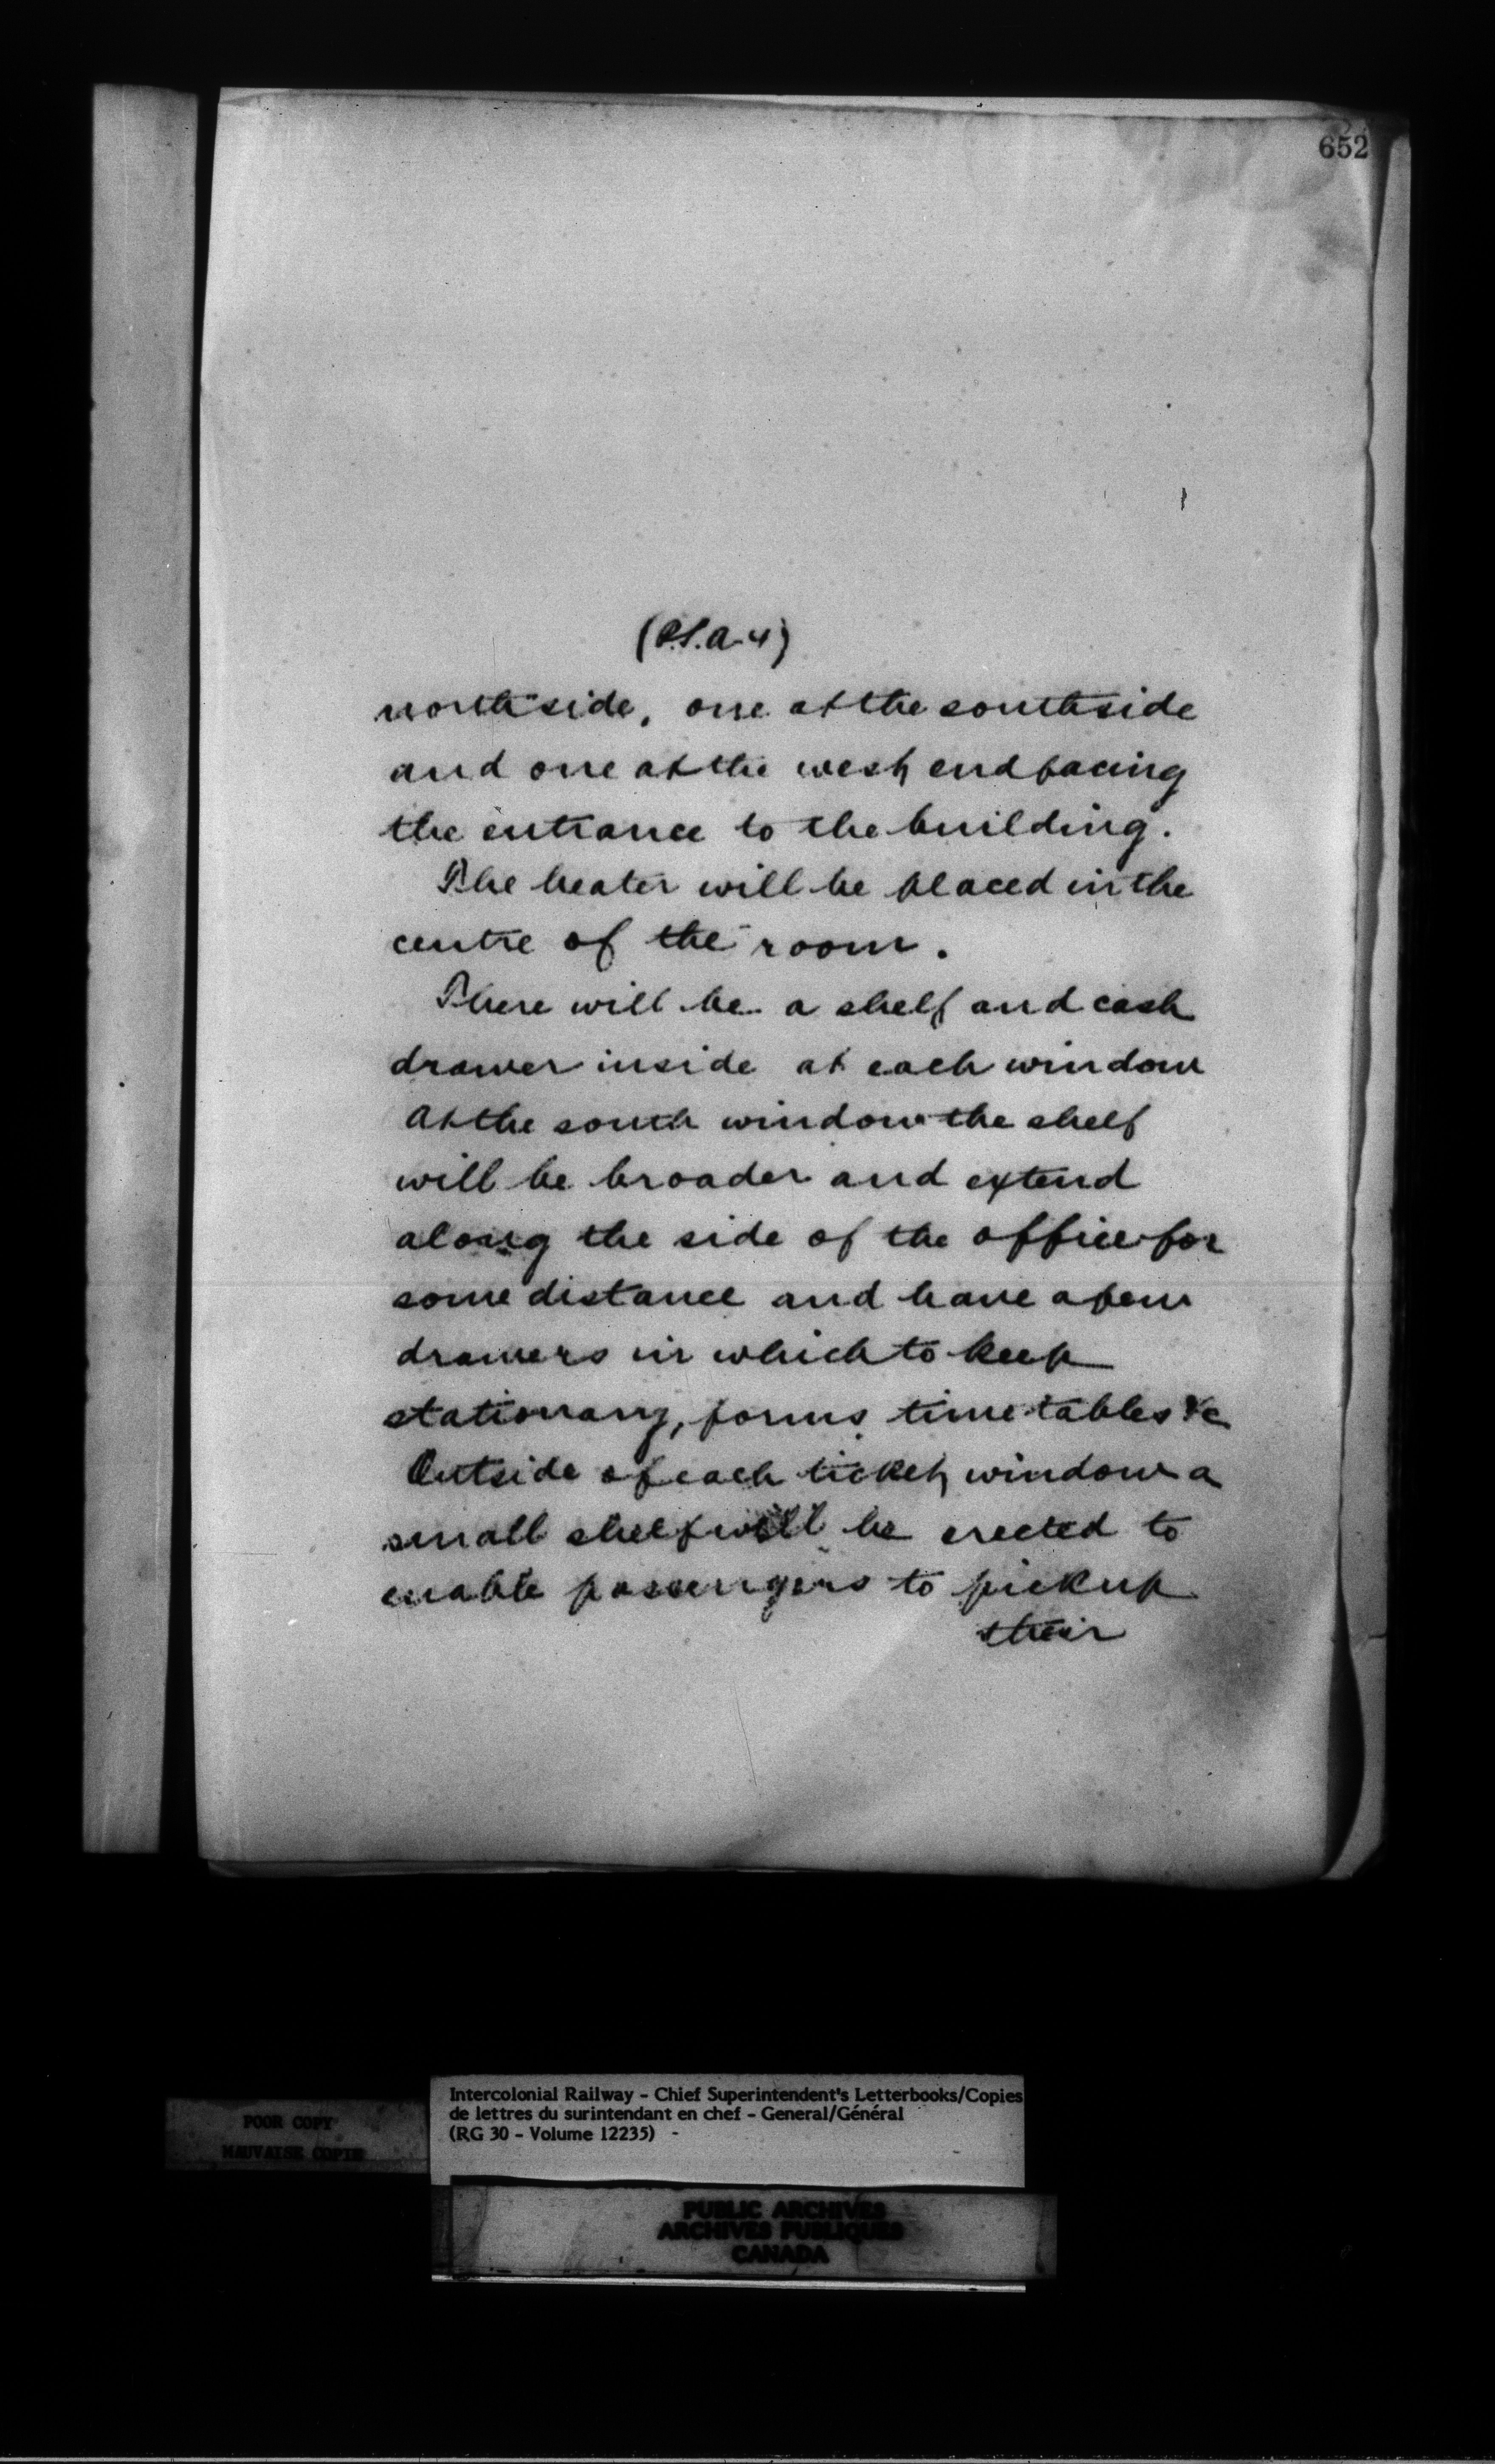 652
(P.S.A. 4)
north side, one at the south side
and one at the west end facing
the entrance to the building.
The heater will be placed in the
centre of the room.
There will be a shelf and cash
drawer inside at each window
At the south window the shelf
will be broader and extend
along the side of the office for
some distance and have a few
drawers in which to keep
stationary, forms, time tables &c
Outside of each ticket window a
small shelf will be erected to
enable passengers to pick up
their
POOR COPY
MAUVAISE COPIE
Intercolonial Railway - Chief Superintendent's Letterbooks/Copies
de lettres du surintendant en chef - General/Général
(RG 30 - Volume 12235) -
PUBLIC ARCHIVES
ARCHIVES PUBLIQUES
CANADA